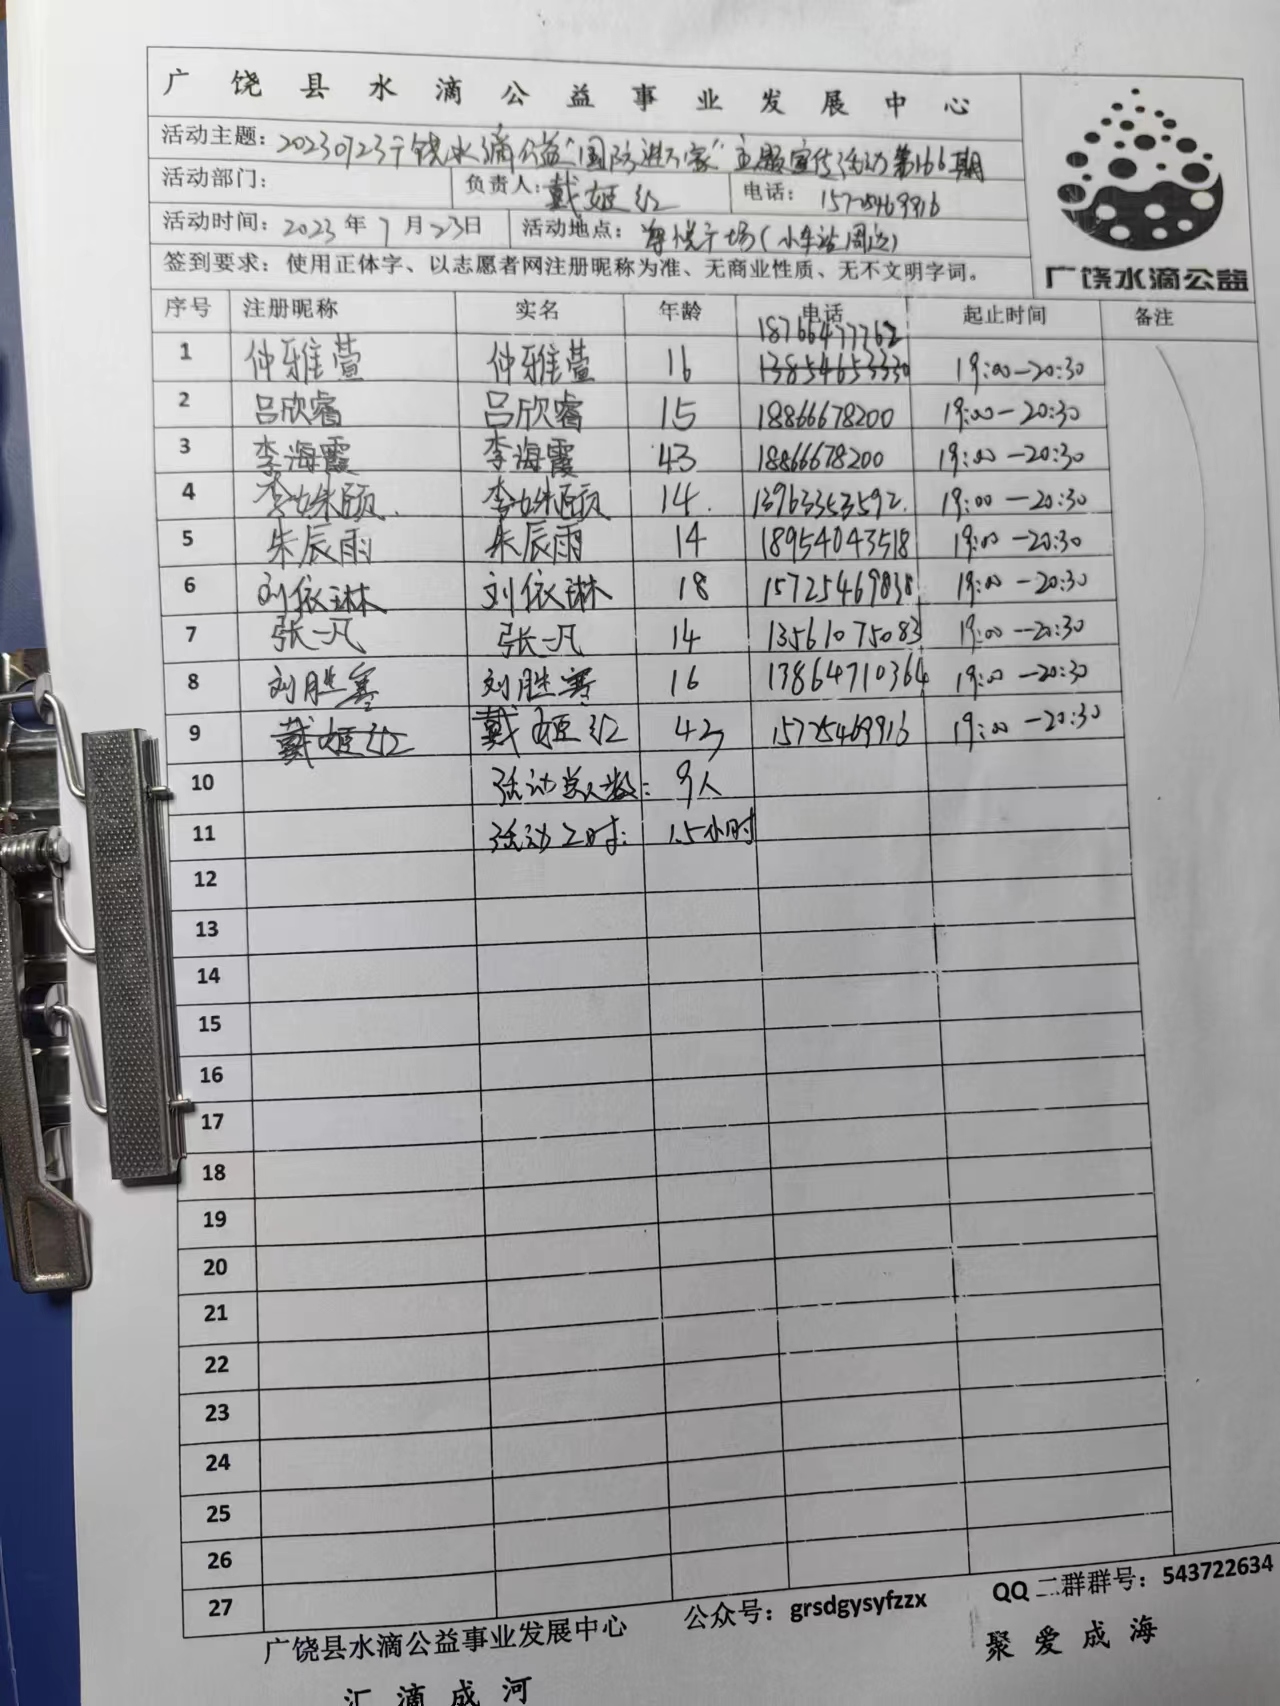 广饶县水滴公益事业发展中心
活动主题：20230723广饶水滴公益“国防进万家”主题宣传活动第166期
活动部门： 负责人：戴姬红 电话：15725469916
活动时间：2023年7月23日 活动地点：海悦广场（小车站周边）
签到要求：使用正体字、以志愿者网注册昵称为准、无商业性质、无不文明字词。
广饶水滴公益
序号 注册昵称 实名 年龄 电话 起止时间 备注
18766477762
1 仲雅萱 仲雅萱 16 13854653330 19:00-20:30
2 吕欣睿 吕欣睿 15 18866678200 19:00-20:30
3 李海霞 李海霞 43 18866678200 19:00-20:30
4 李姝颐 李姝颐 14 13963353592 19:00-20:30
5 朱辰雨 朱辰雨 14 18954043518 19:00-20:30
6 刘依琳 刘依琳 18 15725469838 19:00-20:30
7 张一凡 张一凡 14 13561075083 19:00-20:30
8 刘胜骞 刘胜骞 16 13864710364 19:00-20:30
9 戴姬红 戴姬红 43 15725469916 19:00-20:30
10 活动总人数：9人
11 活动工时：1.5小时
12
13
14
15
16
17
18
19
20
21
22
23
24
25
26
27
广饶县水滴公益事业发展中心 公众号：grsdgysyfzzx QQ二群群号：543722634
汇滴成河 聚爱成海